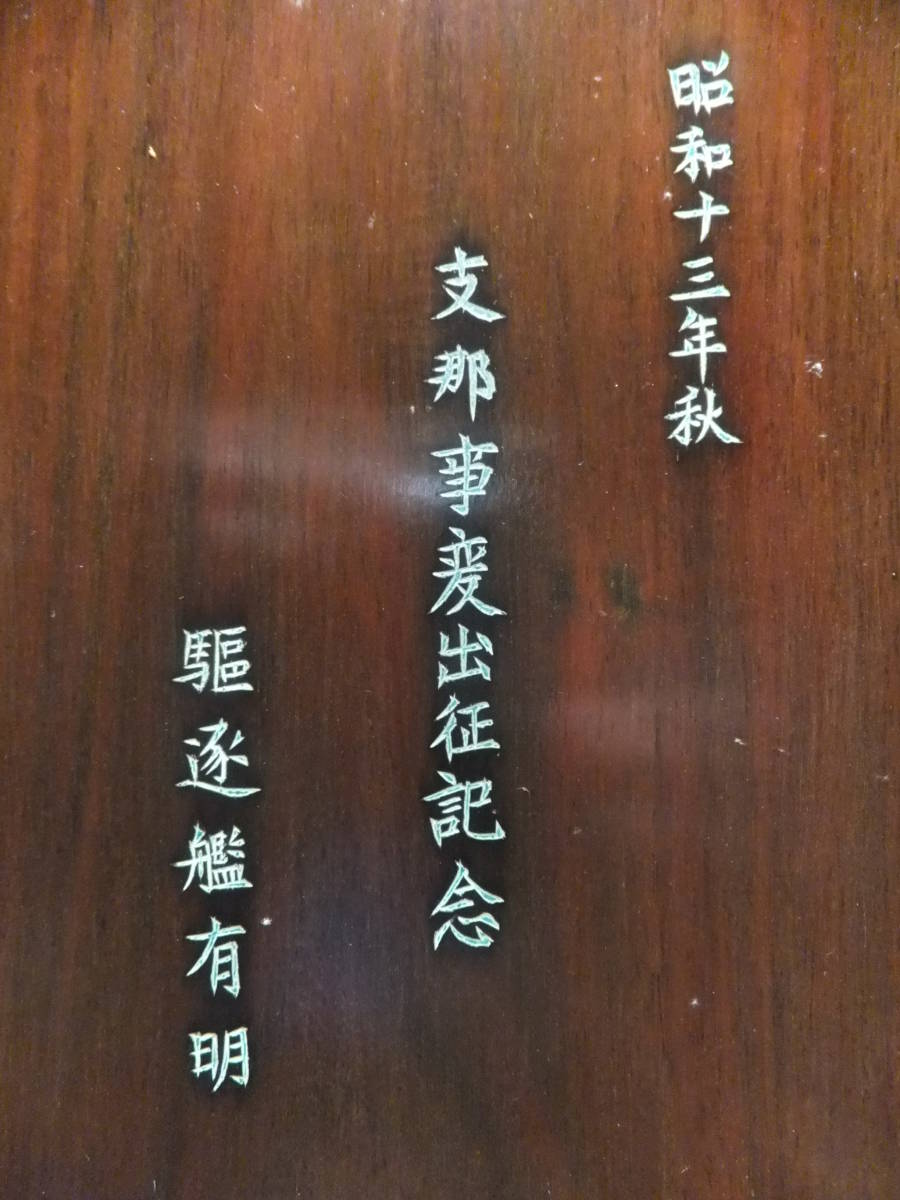 昭和十三年秋
支那事変出征記念
駆逐艦有明